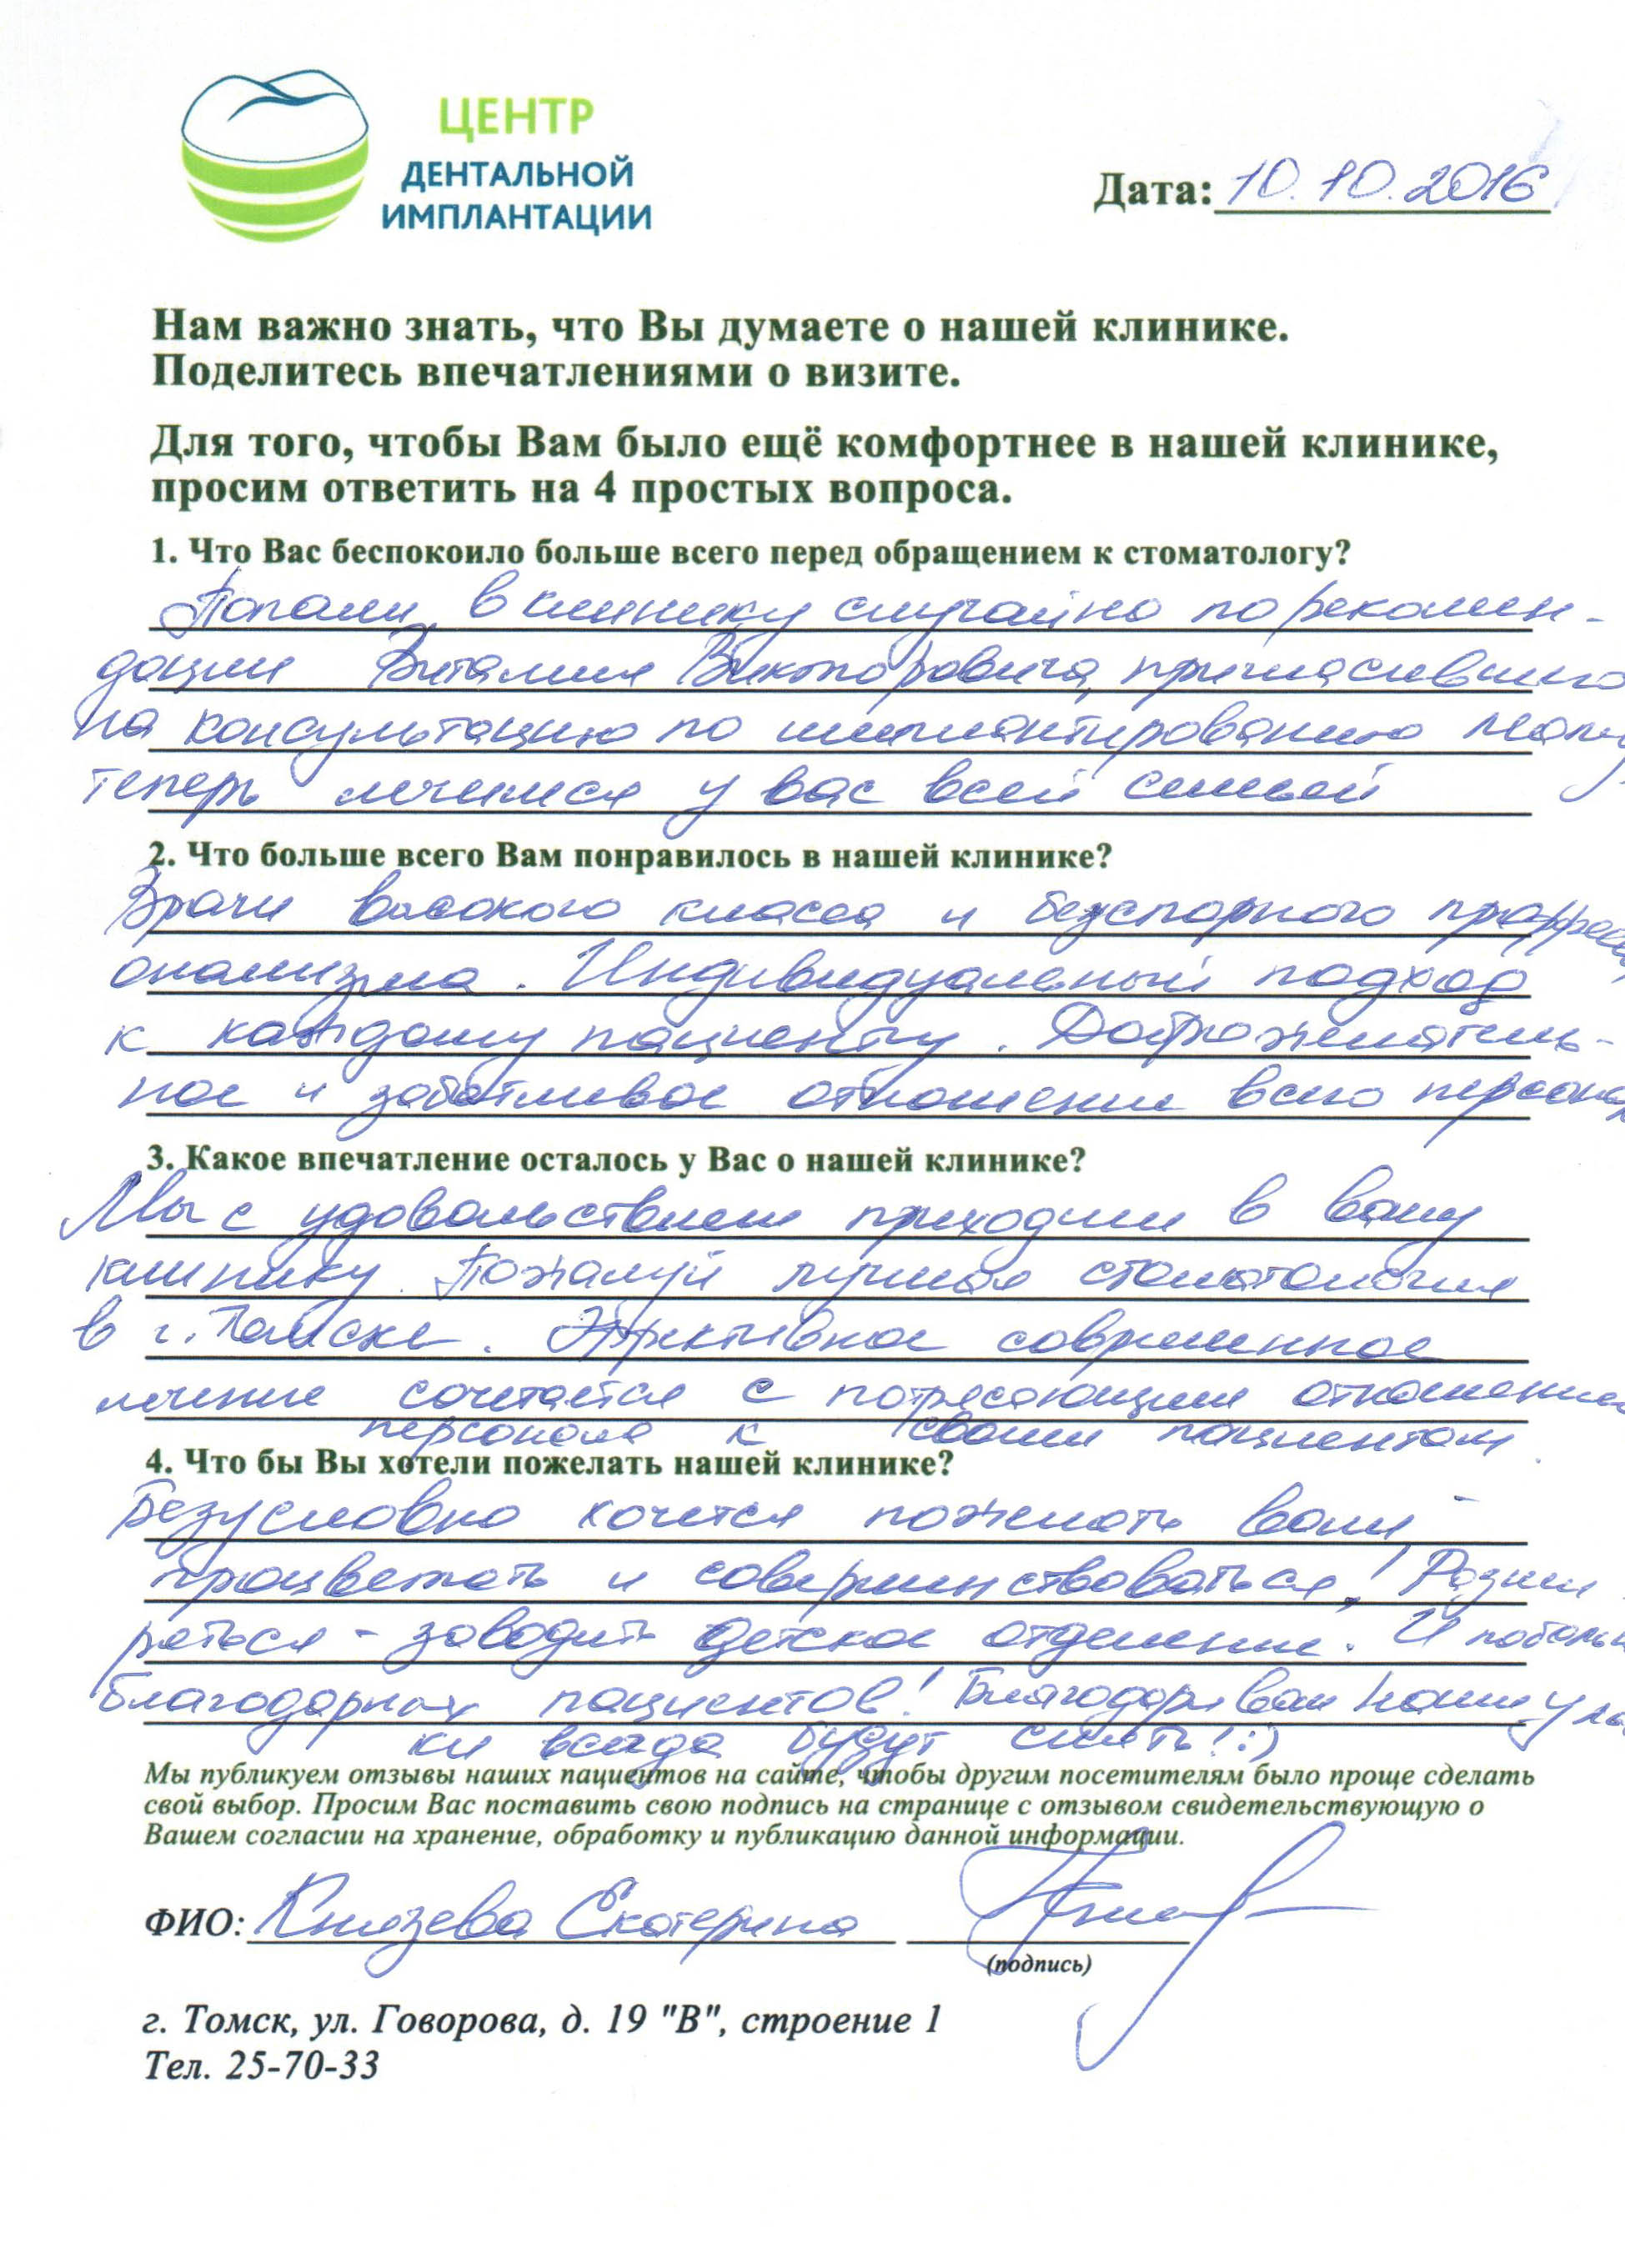 ЦЕНТР
ДЕНТАЛЬНОЙ
ИМПЛАНТАЦИИ
Дата: 10.10.2016
Нам важно знать, что Вы думаете о нашей клинике.
Поделитесь впечатлениями о визите.
Для того, чтобы Вам было ещё комфортнее в нашей клинике,
просим ответить на 4 простых вопроса.
1. Что Вас беспокоило больше всего перед обращением к стоматологу?
Попали в клинику случайно по рекомен-
дации Виталия Викторовича, пригласившего
на консультацию по имплантированию
теперь лечимся у вас всей семьей
2. Что больше всего Вам понравилось в нашей клинике?
Врачи высокого класса и безспорного
онализма. Индивидуальный подход
к каждому пациенту. Доброжелатель-
ное и заботливое отношение всего
3. Какое впечатление осталось у Вас о нашей клинике?
Мы с удовольствием приходим в вашу
клинику. Пожалуй лучшая стоматология
в г. Томске. Эффективное современное
лечение сочетается с потрясающим отношением
персонала к своим пациентам.
4. Что бы Вы хотели пожелать нашей клинике?
Безусловно хочется пожелать вам -
процветать и совершенствоваться!
заводить детское отделение. И
благодарных пациентов!
ки всегда будут сиять! :)
Мы публикуем отзывы наших пациентов на сайте, чтобы другим посетителям было проще сделать
свой выбор. Просим Вас поставить свою подпись на странице с отзывом свидетельствующую о
Вашем согласии на хранение, обработку и публикацию данной информации.
ФИО: Князева Екатерина
(подпись)
г. Томск, ул. Говорова, д. 19 "В", строение 1
Тел. 25-70-33